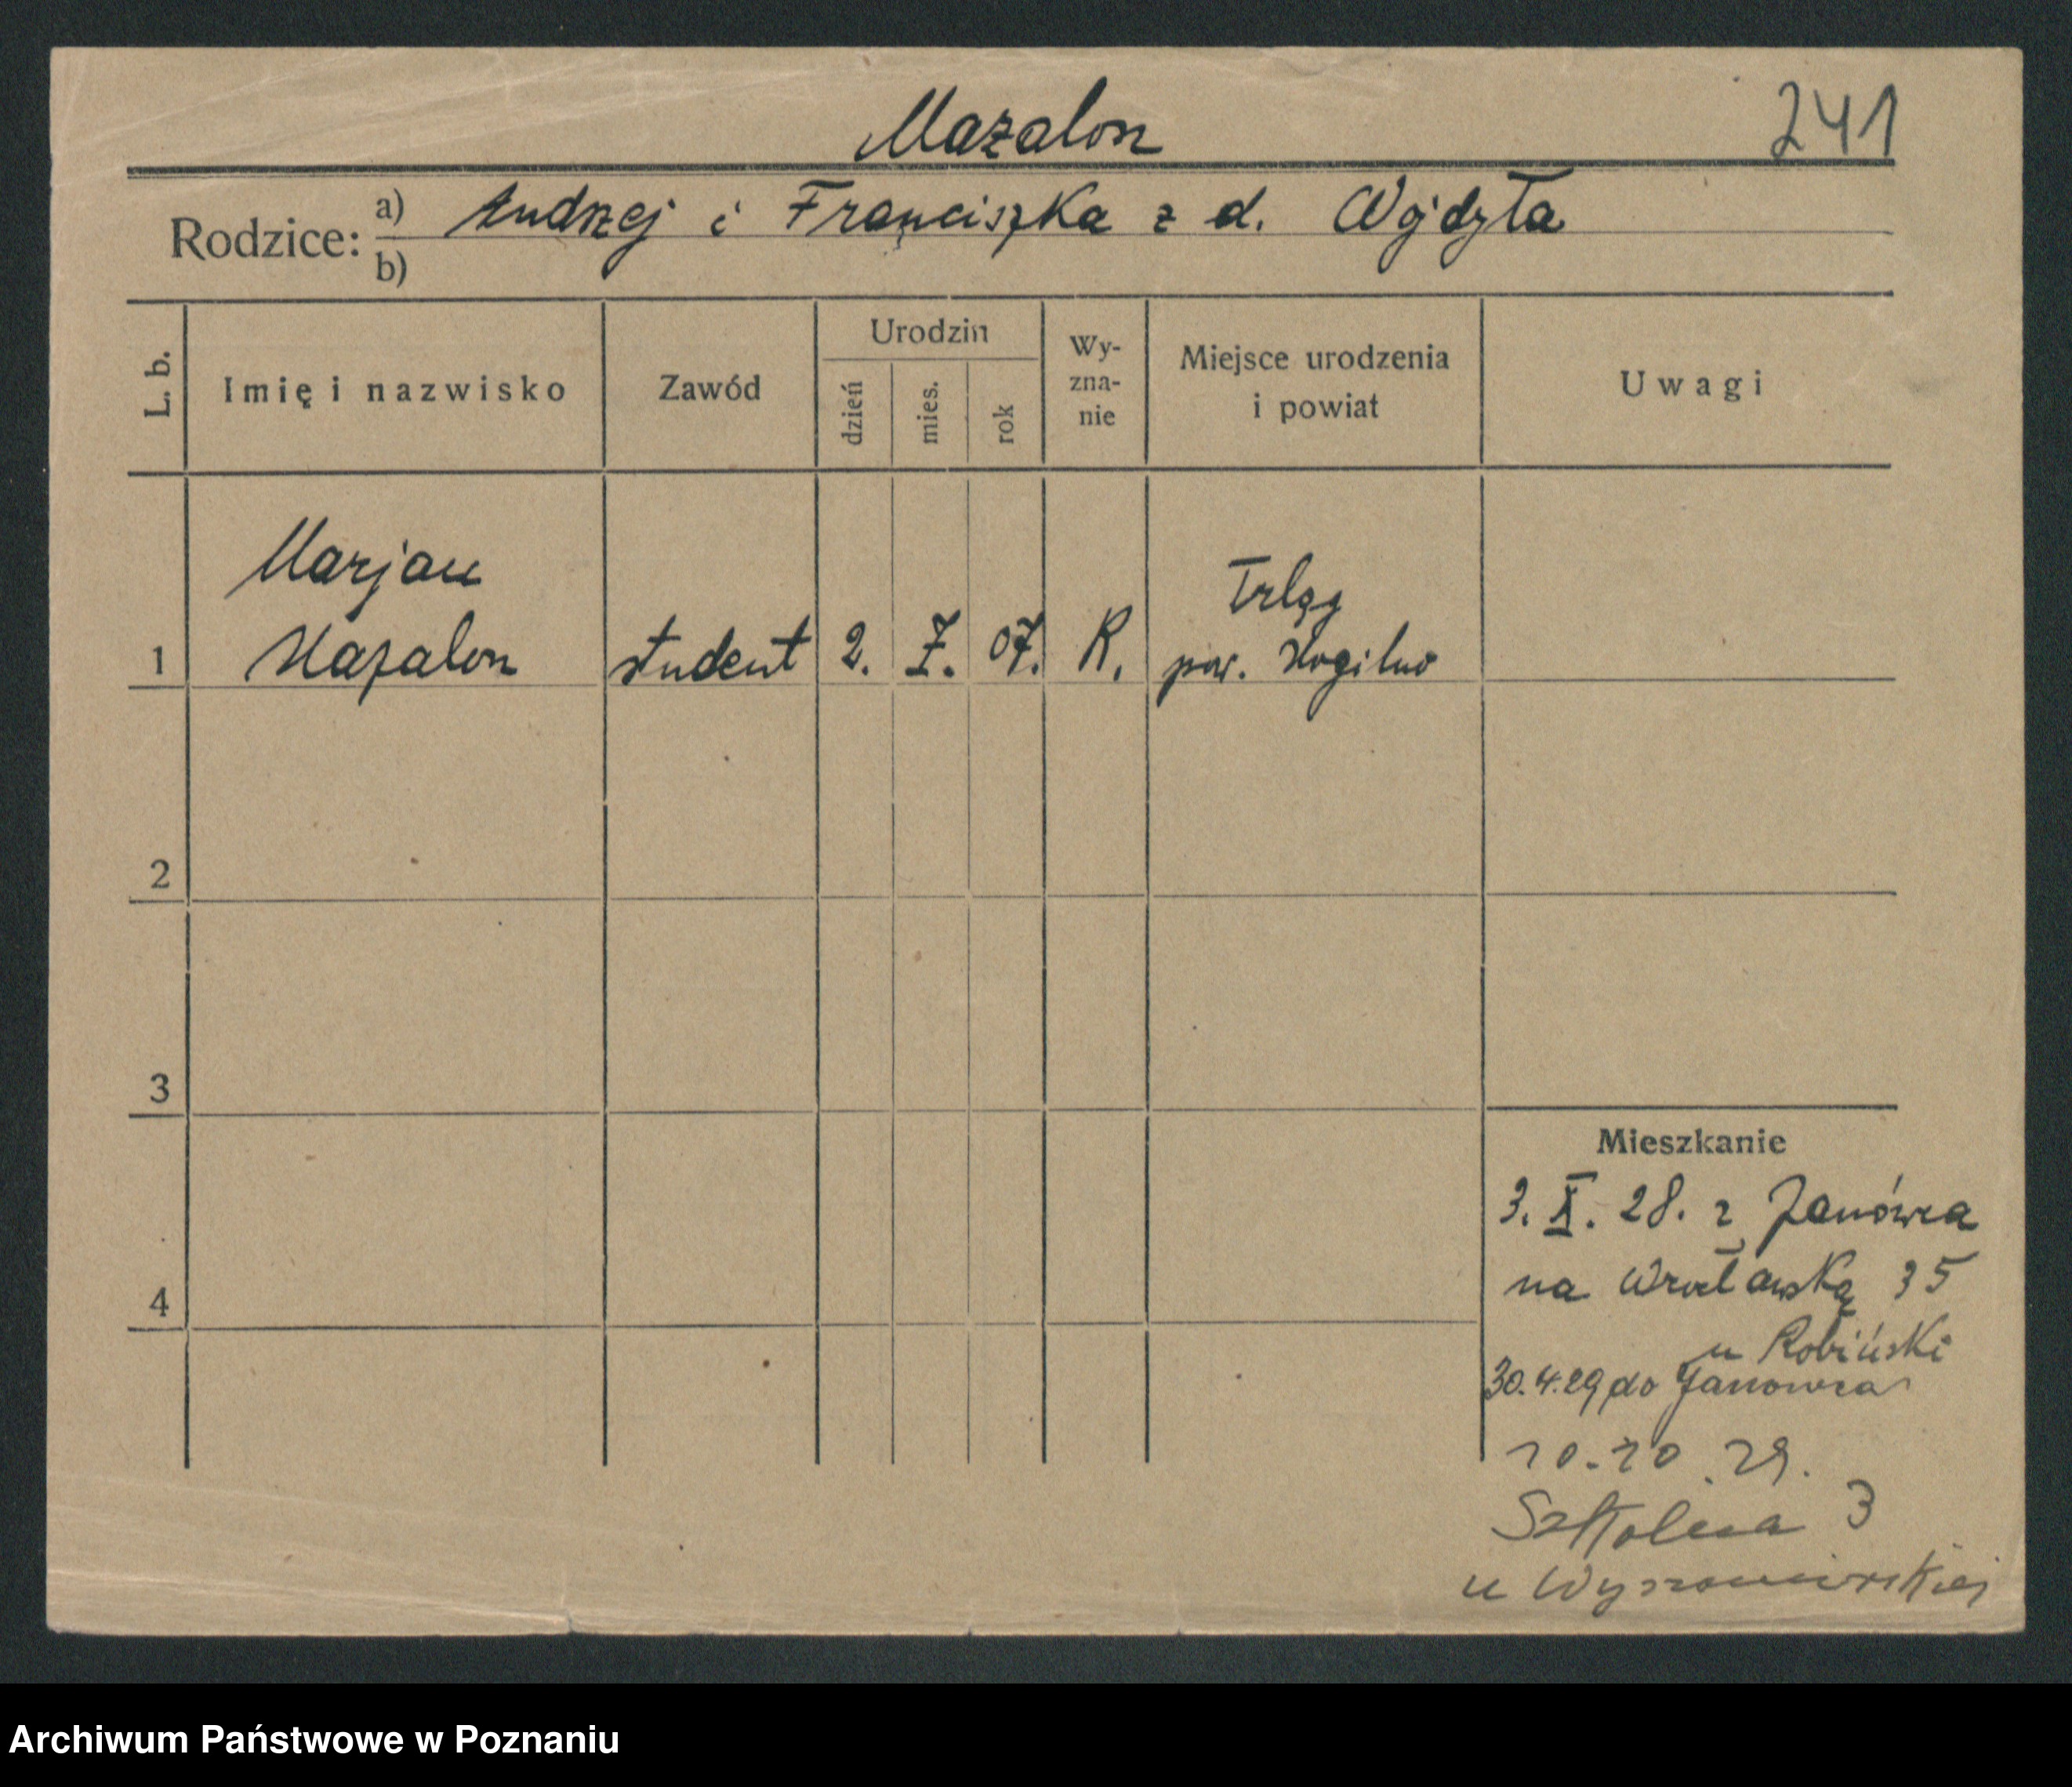 Mazalon
241
Rodzice: a) Andrzej i Franciszka z d. Wojdyła
b)
L. b.
Imię i nazwisko
Zawód
Urodzin
dzień
mies.
rok
Wy-
zna-
nie
Miejsce urodzenia
i powiat
Uwagi
Marjan
Mazalon
1
student
2.
7.
07.
R.
Trląg
pow. Mogilno
2
3
4
Mieszkanie
3. X. 28. z Janówca
na Wrocławską 35
u Robiński
30.4.29 do Janowca
10.10.29.
Szkolna 3
u
Archiwum Państwowe w Poznaniu